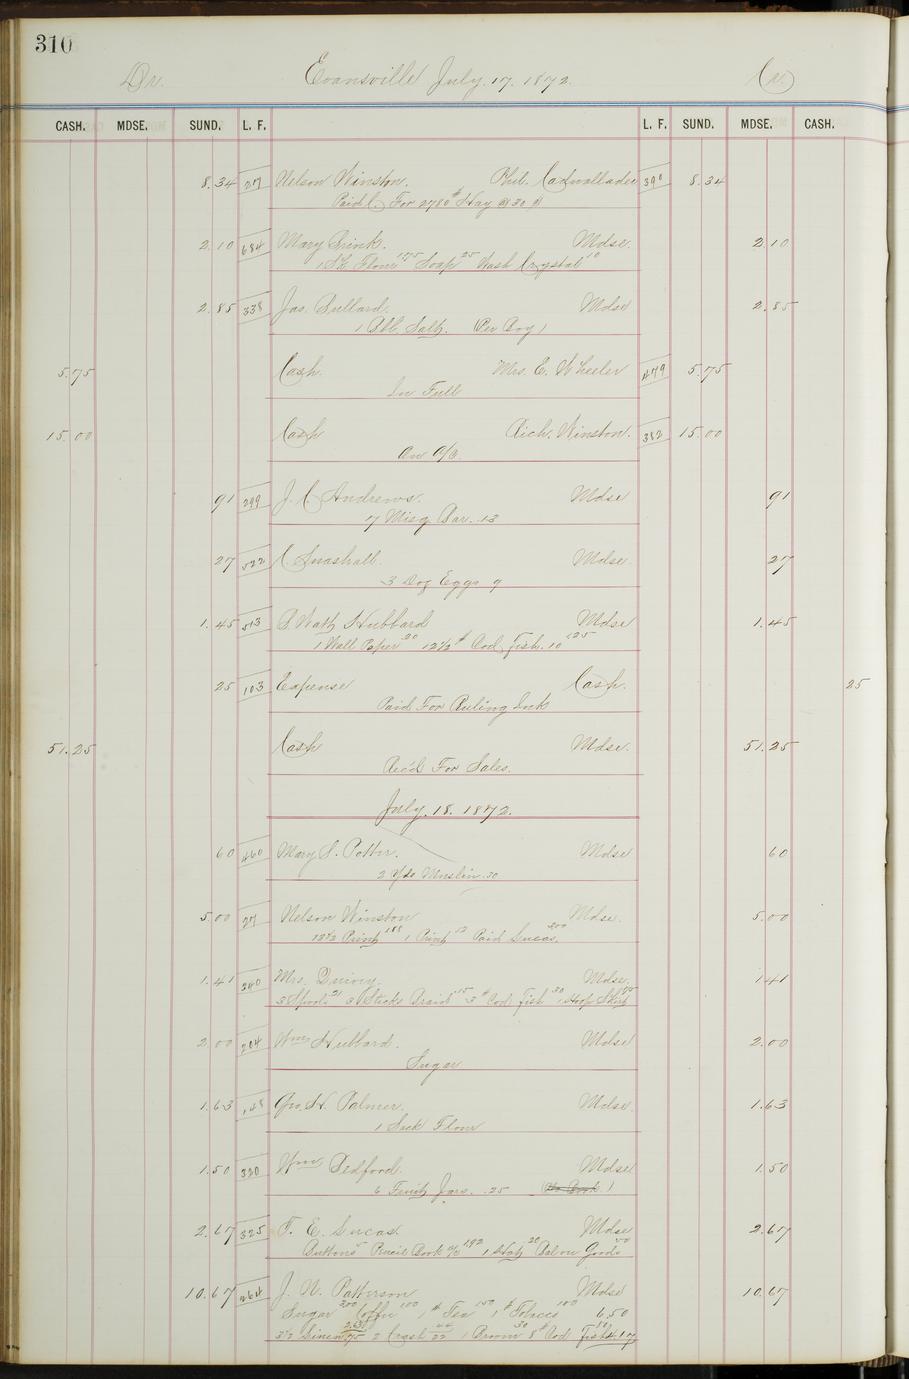 310
Dr. Evansville July. 17. 1872. Cr
CASH. MDSE. SUND. L. F. L. F. SUND. MDSE. CASH.
8.34 27 Nelson Winston. Phil. Cadwallader 390 8.34
Paid C. For 2780 # Hay @
2.10 684 Mary Brink. Mdse. 2.10
1 Sk. Flour 175 Soap 25 Wash Crystal 10
2.85 338 Jas. Bullard. Mdse 2.85
1 Bbl. Salt. (Per Boy)
5.75 Cash. Mrs. E. Wheeler 479 5.75
In Full
15.00 Cash Rich. Winston. 382 15.00
On a/c
91 299 J. C. Andrews. Mdse 91
7 Bar. .13
27 522 C. Snashall. Mdse. 27
3 Doz Eggs 9
1.45 513 Hubbard Mdse 1.45
1 Wall Paper 20 12½ # Cod Fish. 10 125
25 103 Expense Cash. 25
Paid For Ruling Ink
51.25 Cash Mdse. 51.25
Rec'd For Sales.
July. 18. 1872.
60 460 Mary S. Potter. Mdse 60
2 Yds Muslin .30
5.00 27 Nelson Winston Mdse. 5.00
12½ Print 188 1 Print 12 Paid Lucas. 300
1.41 240 Mrs. Mdse. 1.41
3 Spools 21 3 Sticks Braid 15 3 # Cod Fish 30 1 Hoop Skirt 75
2.00 204 Wm Hubbard. Mdse 2.00
Sugar
1.63 Geo. H. Palmer. Mdse. 1.63
1 Sack Flour
1.50 320 Wm Bedford. Mdse 1.50
6 Fruit Jars. .25
2.67 325 T. E. Lucas Mdse 2.67
Buttons 5 Book 1 Hat 20 Bal on Goods 50
10.67 264 J. W. Patterson Mdse 10.67
Sugar 200 Coffee 100 1 # Tea 150 1 # Tobacco 100 6.50
3½ Linen 75 2 Crash 22 1 Broom 30 8 # Cod Fish 4.17